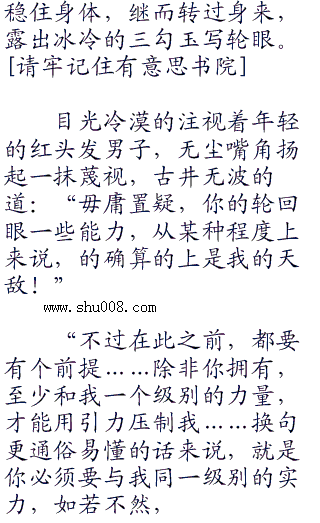 稳住身体，继而转过身来，
露出冰冷的三勾玉写轮眼。
[请牢记住有意思书院]
目光冷漠的注视着年轻
的红头发男子，无尘嘴角扬
起一抹蔑视，古井无波的
道：“毋庸置疑，你的轮回
眼一些能力，从某种程度上
来说，的确算的上是我的天
敌！”
www.shu008.com
“不过在此之前，都要
有个前提……除非你拥有，
至少和我一个级别的力量，
才能用引力压制我……换句
更通俗易懂的话来说，就是
你必须要与我同一级别的实
力，如若不然，